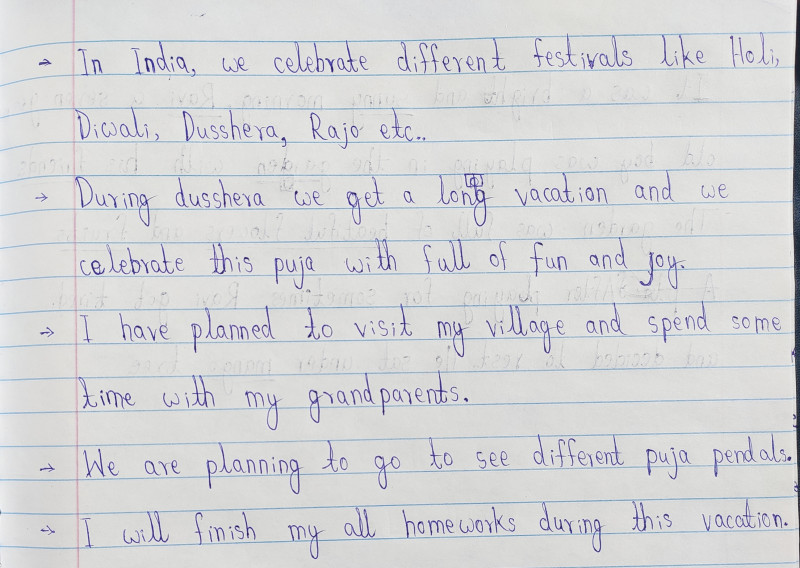 → In India, we celebrate different festivals like Holi,
Diwali, Dusshera, Rajo etc..
→ During dusshera we get a long vacation and we
celebrate this puja with full of fun and joy.
→ I have planned to visit my village and spend some
time with my grandparents.
→ We are planning to go to see different puja pendals.
→ I will finish my all homeworks during this vacation.